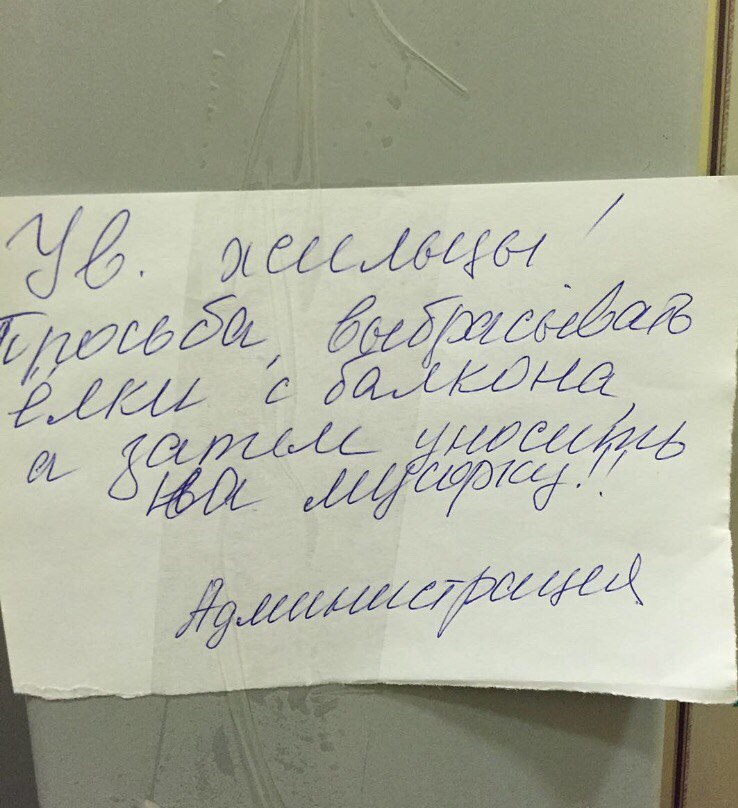 Ув. жильцы!
Просьба, выбрасывать
ёлки с балкона,
а затем уносить
на мусорку!!
Администрация